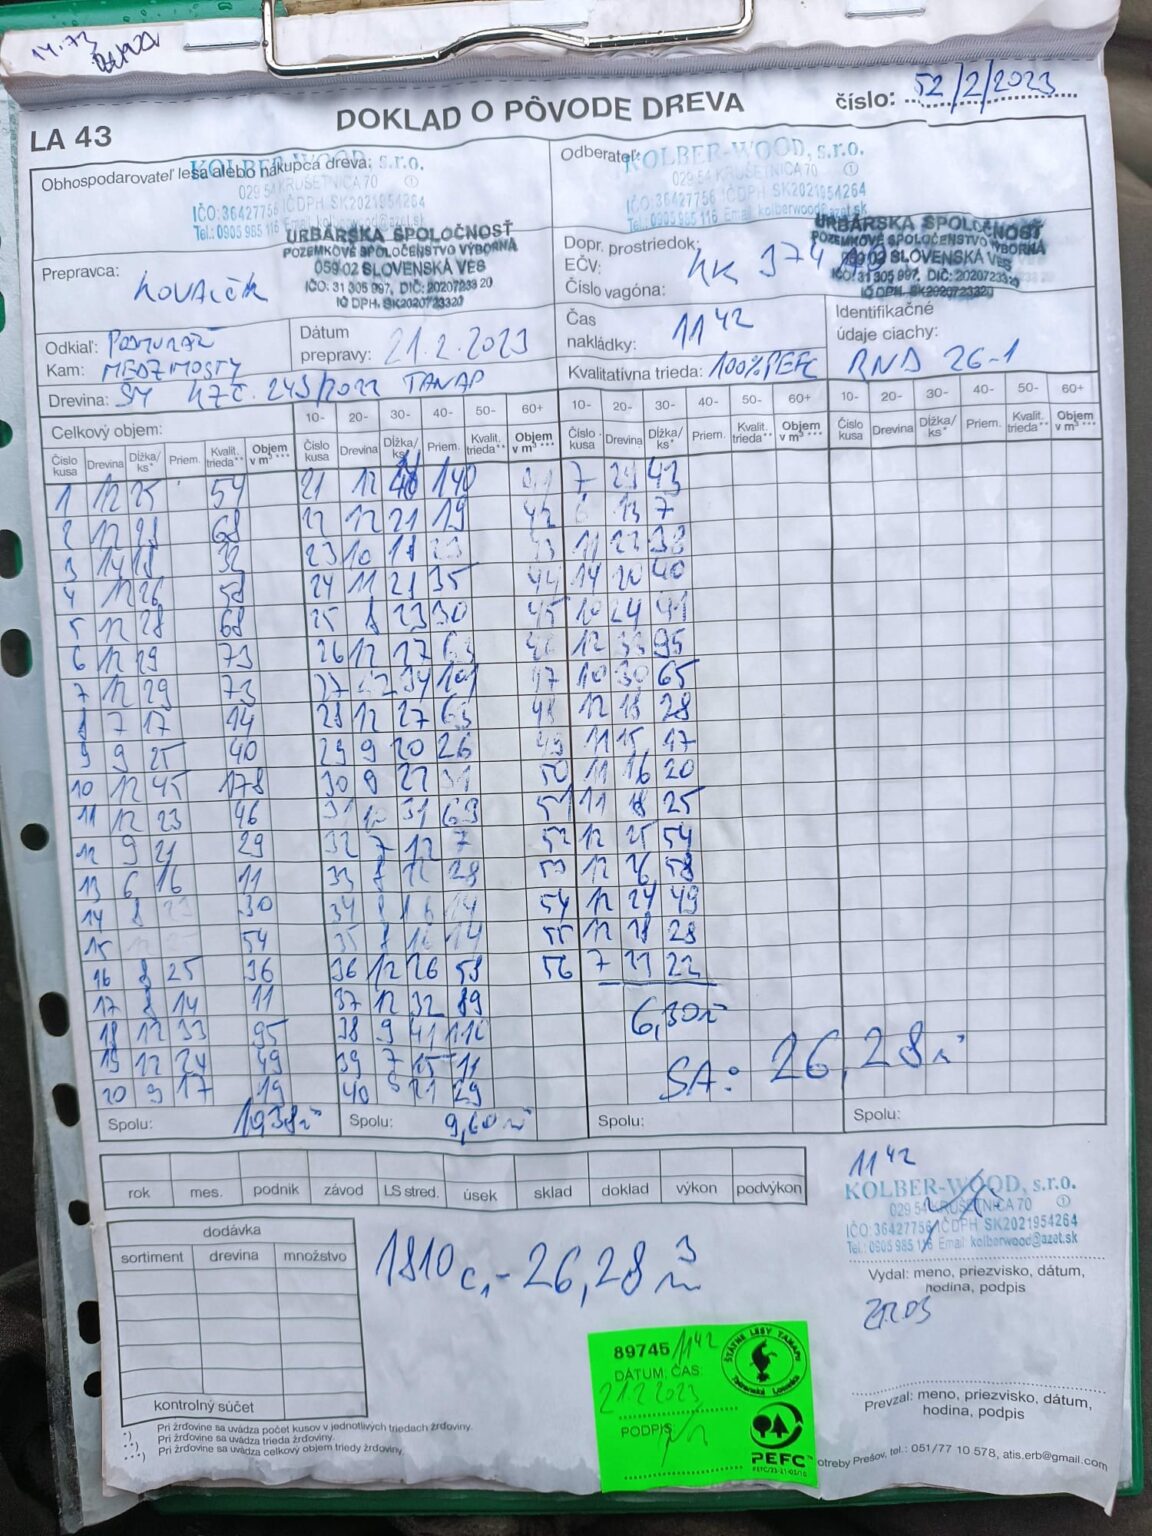 LA 43
DOKLAD O PÔVODE DREVA
číslo: 52/2/2023
Obhospodarovateľ lesa alebo nákupca dreva:
KOLBER-WOOD, s.r.o.
029 54 KRUŠETNICA 70 ①
IČO:36427756 IČDPH SK2021954264
Tel.: 0905 985 116 Email kolberwood@azet.sk
URBÁRSKA SPOLOČNOSŤ
POZEMKOVÉ SPOLOČENSTVO VÝBORNÁ
059 02 SLOVENSKÁ VES
IČO: 31 305 997, DIČ: 2020723320
IČ DPH: SK2020723320
Odberateľ:
KOLBER-WOOD, s.r.o.
029 54 KRUŠETNICA 70 ①
IČO:36427756 IČDPH SK2021954264
Tel.: 0905 985 116 Email kolberwood@azet.sk
URBÁRSKA SPOLOČNOSŤ
POZEMKOVÉ SPOLOČENSTVO VÝBORNÁ
059 02 SLOVENSKÁ VES
IČO: 31 305 997, DIČ: 2020723320
IČ DPH: SK2020723320
Prepravca:
Dopr. prostriedok:
EČV:
Číslo vagóna:
Odkiaľ:
Kam: MEDZIMOSTY
Dátum
prepravy: 21.2.2023
Čas
nakládky: 11 42
Identifikačné
údaje ciachy:
RND 26-1
Drevina: SM 47 Č. 243/2022 TANAP
Kvalitatívna trieda: 100% PEFC
Celkový objem:
10- 20- 30- 40- 50- 60+ 10- 20- 30- 40- 50- 60+ 10- 20- 30- 40- 50- 60+
Číslo kusa Drevina Dĺžka/ks* Priem. Kvalit. trieda** Objem v m³*** Číslo kusa Drevina Dĺžka/ks* Priem. Kvalit. trieda** Objem v m³*** Číslo kusa Drevina Dĺžka/ks* Priem. Kvalit. trieda** Objem v m³*** Číslo kusa Drevina Dĺžka/ks* Priem. Kvalit. trieda** Objem v m³***
1 12 25 54 21 12 40 140 7 29 43
2 12 28 68 22 12 21 19 42 13 7
3 14 18 32 23 10 18 23 11 22 38
4 12 26 58 24 11 21 35 44 14 20 40
5 12 28 68 25 8 23 30 45 10 24 41
6 12 29 73 26 12 27 63 12 33 95
7 12 29 73 27 12 34 101 47 10 30 65
8 7 17 14 28 12 27 63 48 12 18 28
9 9 25 40 29 9 20 26 49 11 15 17
10 12 45 178 30 9 22 31 50 11 16 20
11 12 23 46 31 10 31 69 51 11 18 25
12 9 21 29 32 7 12 7 52 12 25 54
13 6 16 11 33 8 28 53 12 26 58
14 8 23 30 34 8 16 14 54 12 24 49
15 54 35 8 16 14 55 12 18 28
16 8 25 36 36 12 26 58 56 7 22
17 8 14 11 37 12 32 89
18 12 33 95 38 9 41 116
19 12 24 49 39 7 15 11
20 9 17 19 40 21 29
6,30
SA: 26,28
Spolu:
Spolu: 9,60
Spolu:
Spolu:
rok mes. podnik závod LS stred. úsek sklad doklad výkon podvýkon
dodávka
sortiment drevina množstvo
kontrolný súčet
1810 c,- 26,28 m³
11 42
KOLBER-WOOD, s.r.o.
029 54 KRUŠETNICA 70 ①
IČO: 36427756 IČDPH SK2021954264
Tel.: 0905 985 116 Email kolberwood@azet.sk
Vydal: meno, priezvisko, dátum,
hodina, podpis
Prevzal: meno, priezvisko, dátum,
hodina, podpis
89745 11 42
DÁTUM, ČAS:
21.2.2023
PODPIS
ŠTÁTNE LESY TANAPU
Tatranská Lomnica
PEFC
*) Pri žrďovine sa uvádza počet kusov v jednotlivých triedach žrďoviny.
**) Pri žrďovine sa uvádza trieda žrďoviny.
***) Pri žrďovine sa uvádza celkový objem triedy žrďoviny.
otreby Prešov, tel.: 051/77 10 578, atis.erb@gmail.com